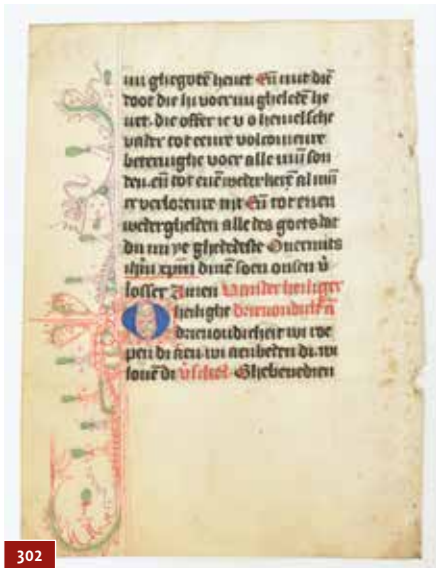 mi ghegotē heuet Eñ mit diē
doot die hi voer mi gheledē he
uet. die offer ic v o hemelsche
vader tot eenre volcomenre
beteringhe voer alle mijn son
den. eñ tot enē wederkerē al mijn
re verlorenre tijt Eñ tot enen
wederghelden alle des goets dat
du mi ye ghededeste Ouermits
ihm xpm dinē soen onsen v
losser Amen Vander heiliger
O heilighe drieuoudich
drieuoudicheit wi roe
pen di aen wi aenbeden di. wi
louē di v̄sekel Ghebenedien
302